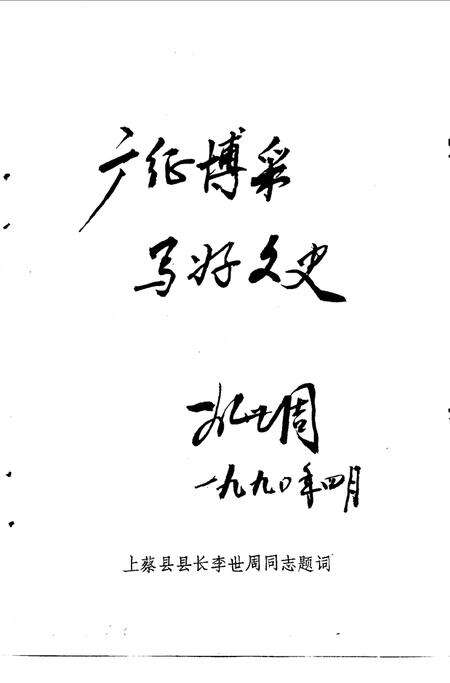 广征博采
写好文史
李世周
一九九〇年四月
上蔡县县长李世周同志题词